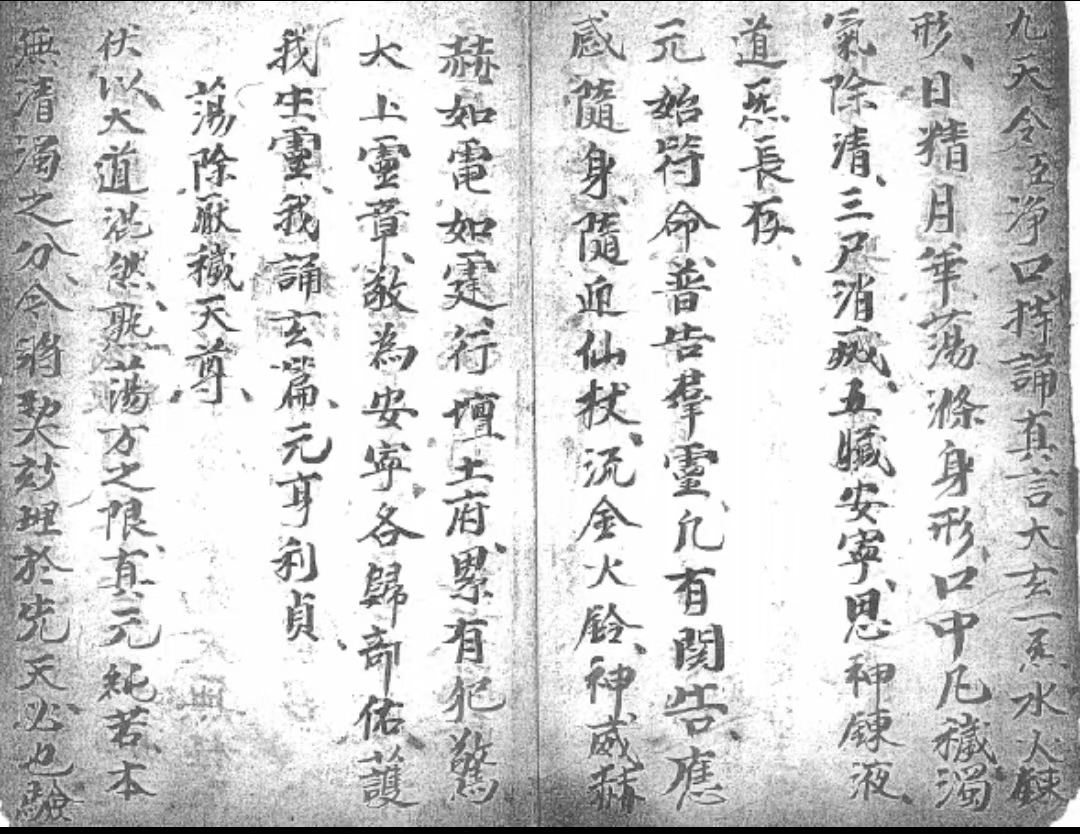 九天令吾淨口持誦真言、大玄一炁水火鍊
形、日精月華蕩滌身形、口中凡穢濁
氣除清、三尸消滅、五臟安寧、思神鍊液、
道炁長存、
元始符命、普告羣靈、凡有関告、應
感隨身、隨迎仙杖、沉金火鈴、神威赫
赫如電如霆、行壇土府、累有犯驚
大上靈章、敬為安寧各歸奇佑、護
我生靈、我誦玄篇、元亨利貞、
蕩除厭穢天尊、
伏以大道混然、蕩方之限、真元純若、本
無清濁之分、今將契玅理於先天必也驗